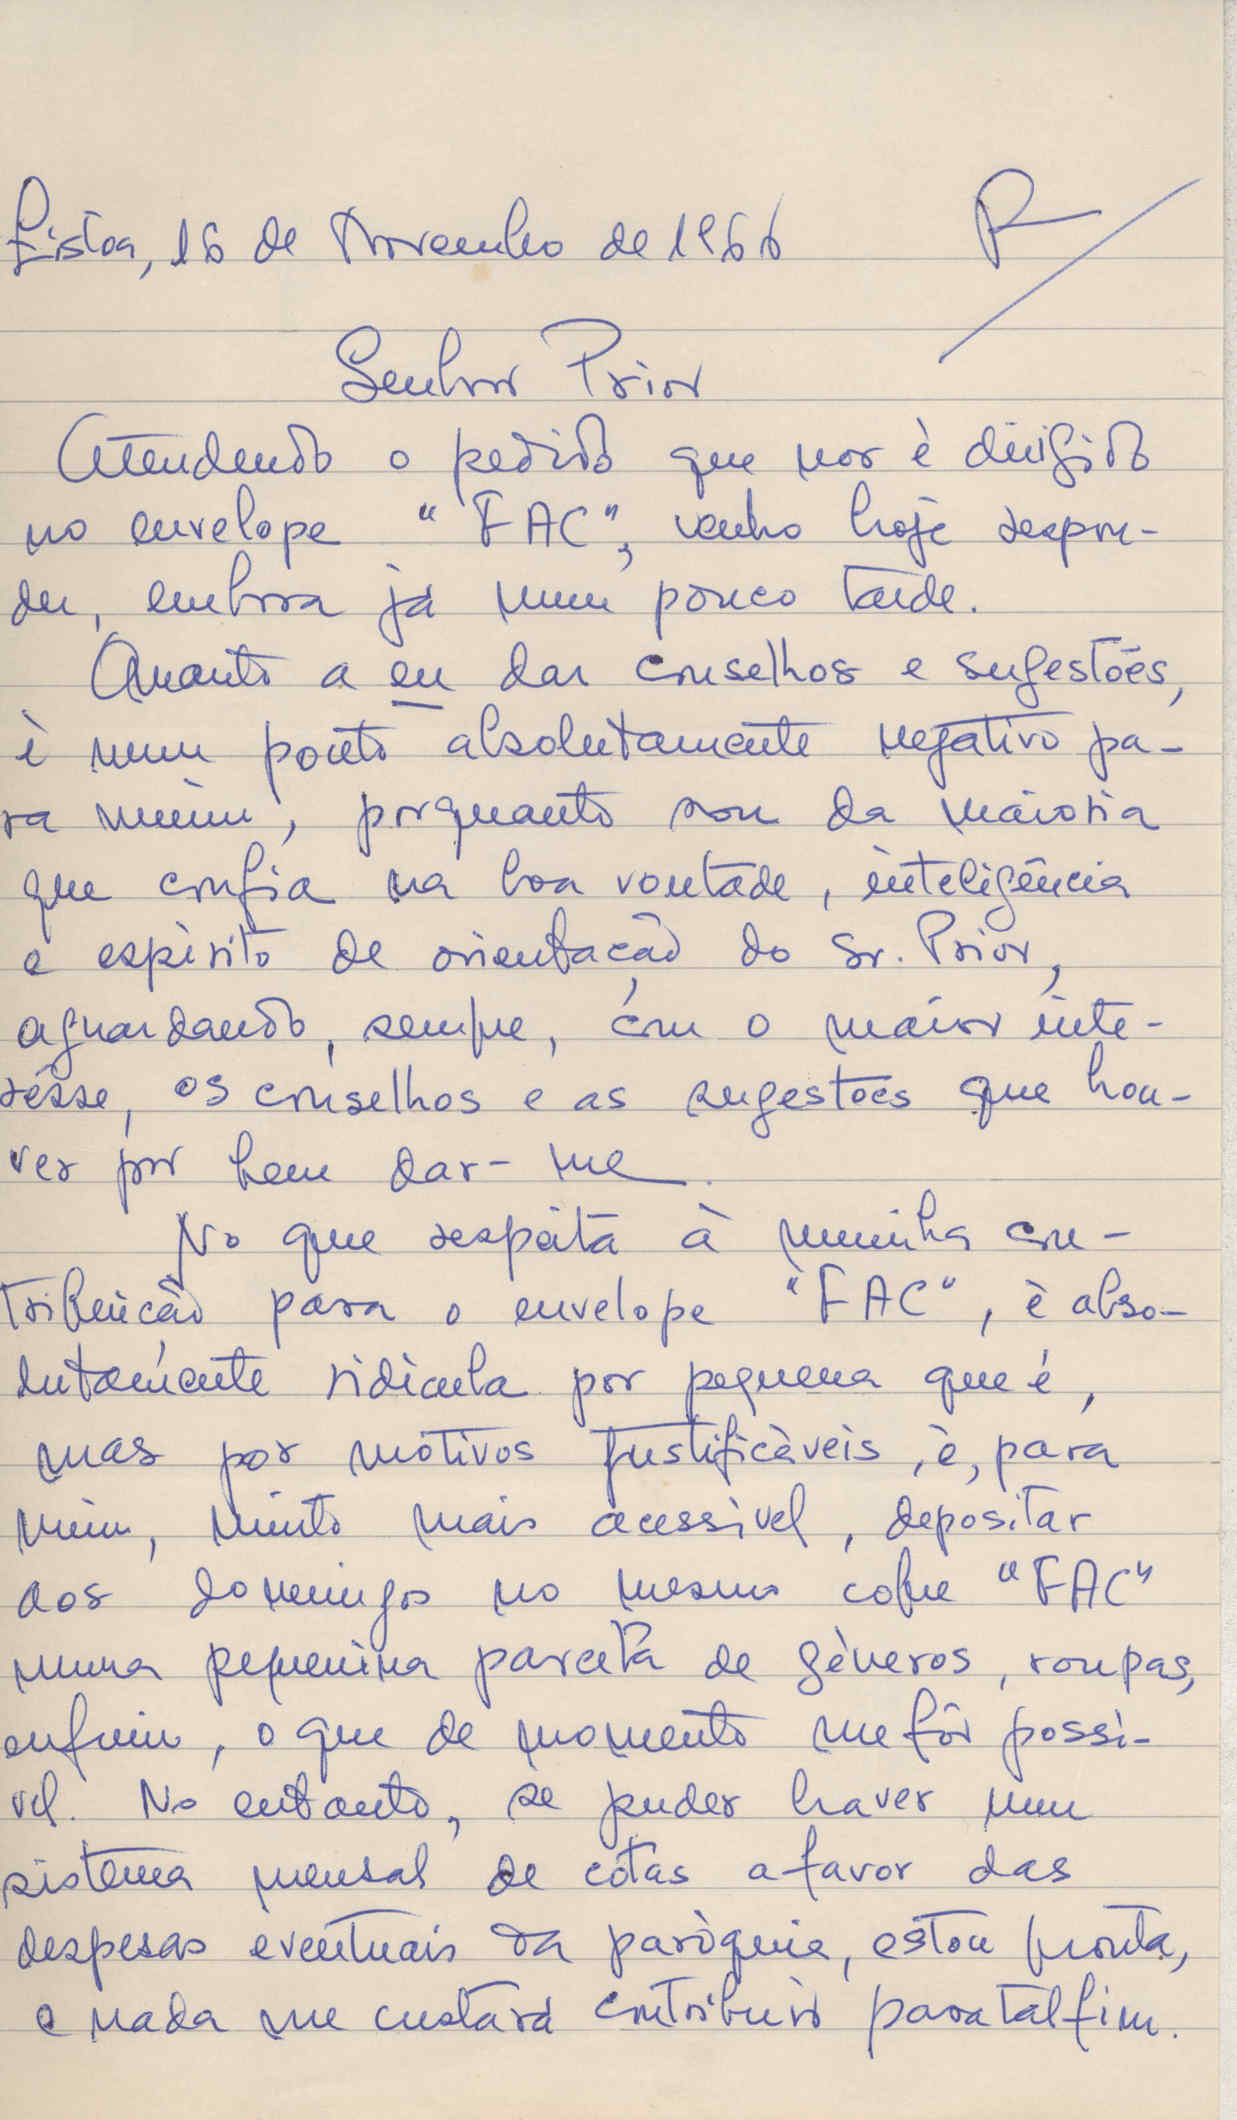 Lisboa, 16 de Novembro de 1966
R
Senhor Prior
Atendendo o pedido que nos è dirigido
no envelope "FAC", venho hoje respon-
der, embora já num pouco tarde.
Quanto a eu dar conselhos e sugestões,
è num ponto absolutamente negativo pa-
ra mim, porquanto sou da maioria
que confia na boa vontade, inteligência
e espírito de orientação do Sr. Prior,
aguardando, sempre, com o maior inte-
rêsse, os conselhos e as sugestões que hou-
ver por bem dar-me.
No que respeita à minha con-
tribuição para o envelope "FAC", è abso-
lutamente ridicula por pequena que é,
mas por motivos justificàveis, è, para
mim, muito mais acessivel, depositar
aos domingos no mesmo cofre "FAC"
numa pequenina parcela de gèneros, roupas,
enfim, o que de momento me fôr possi-
vel. No entanto, se puder haver um
sistema mensal de cótas a favor das
despesas eventuais da paròquia, estou pronta,
e nada me custará contribuir para tal fim.